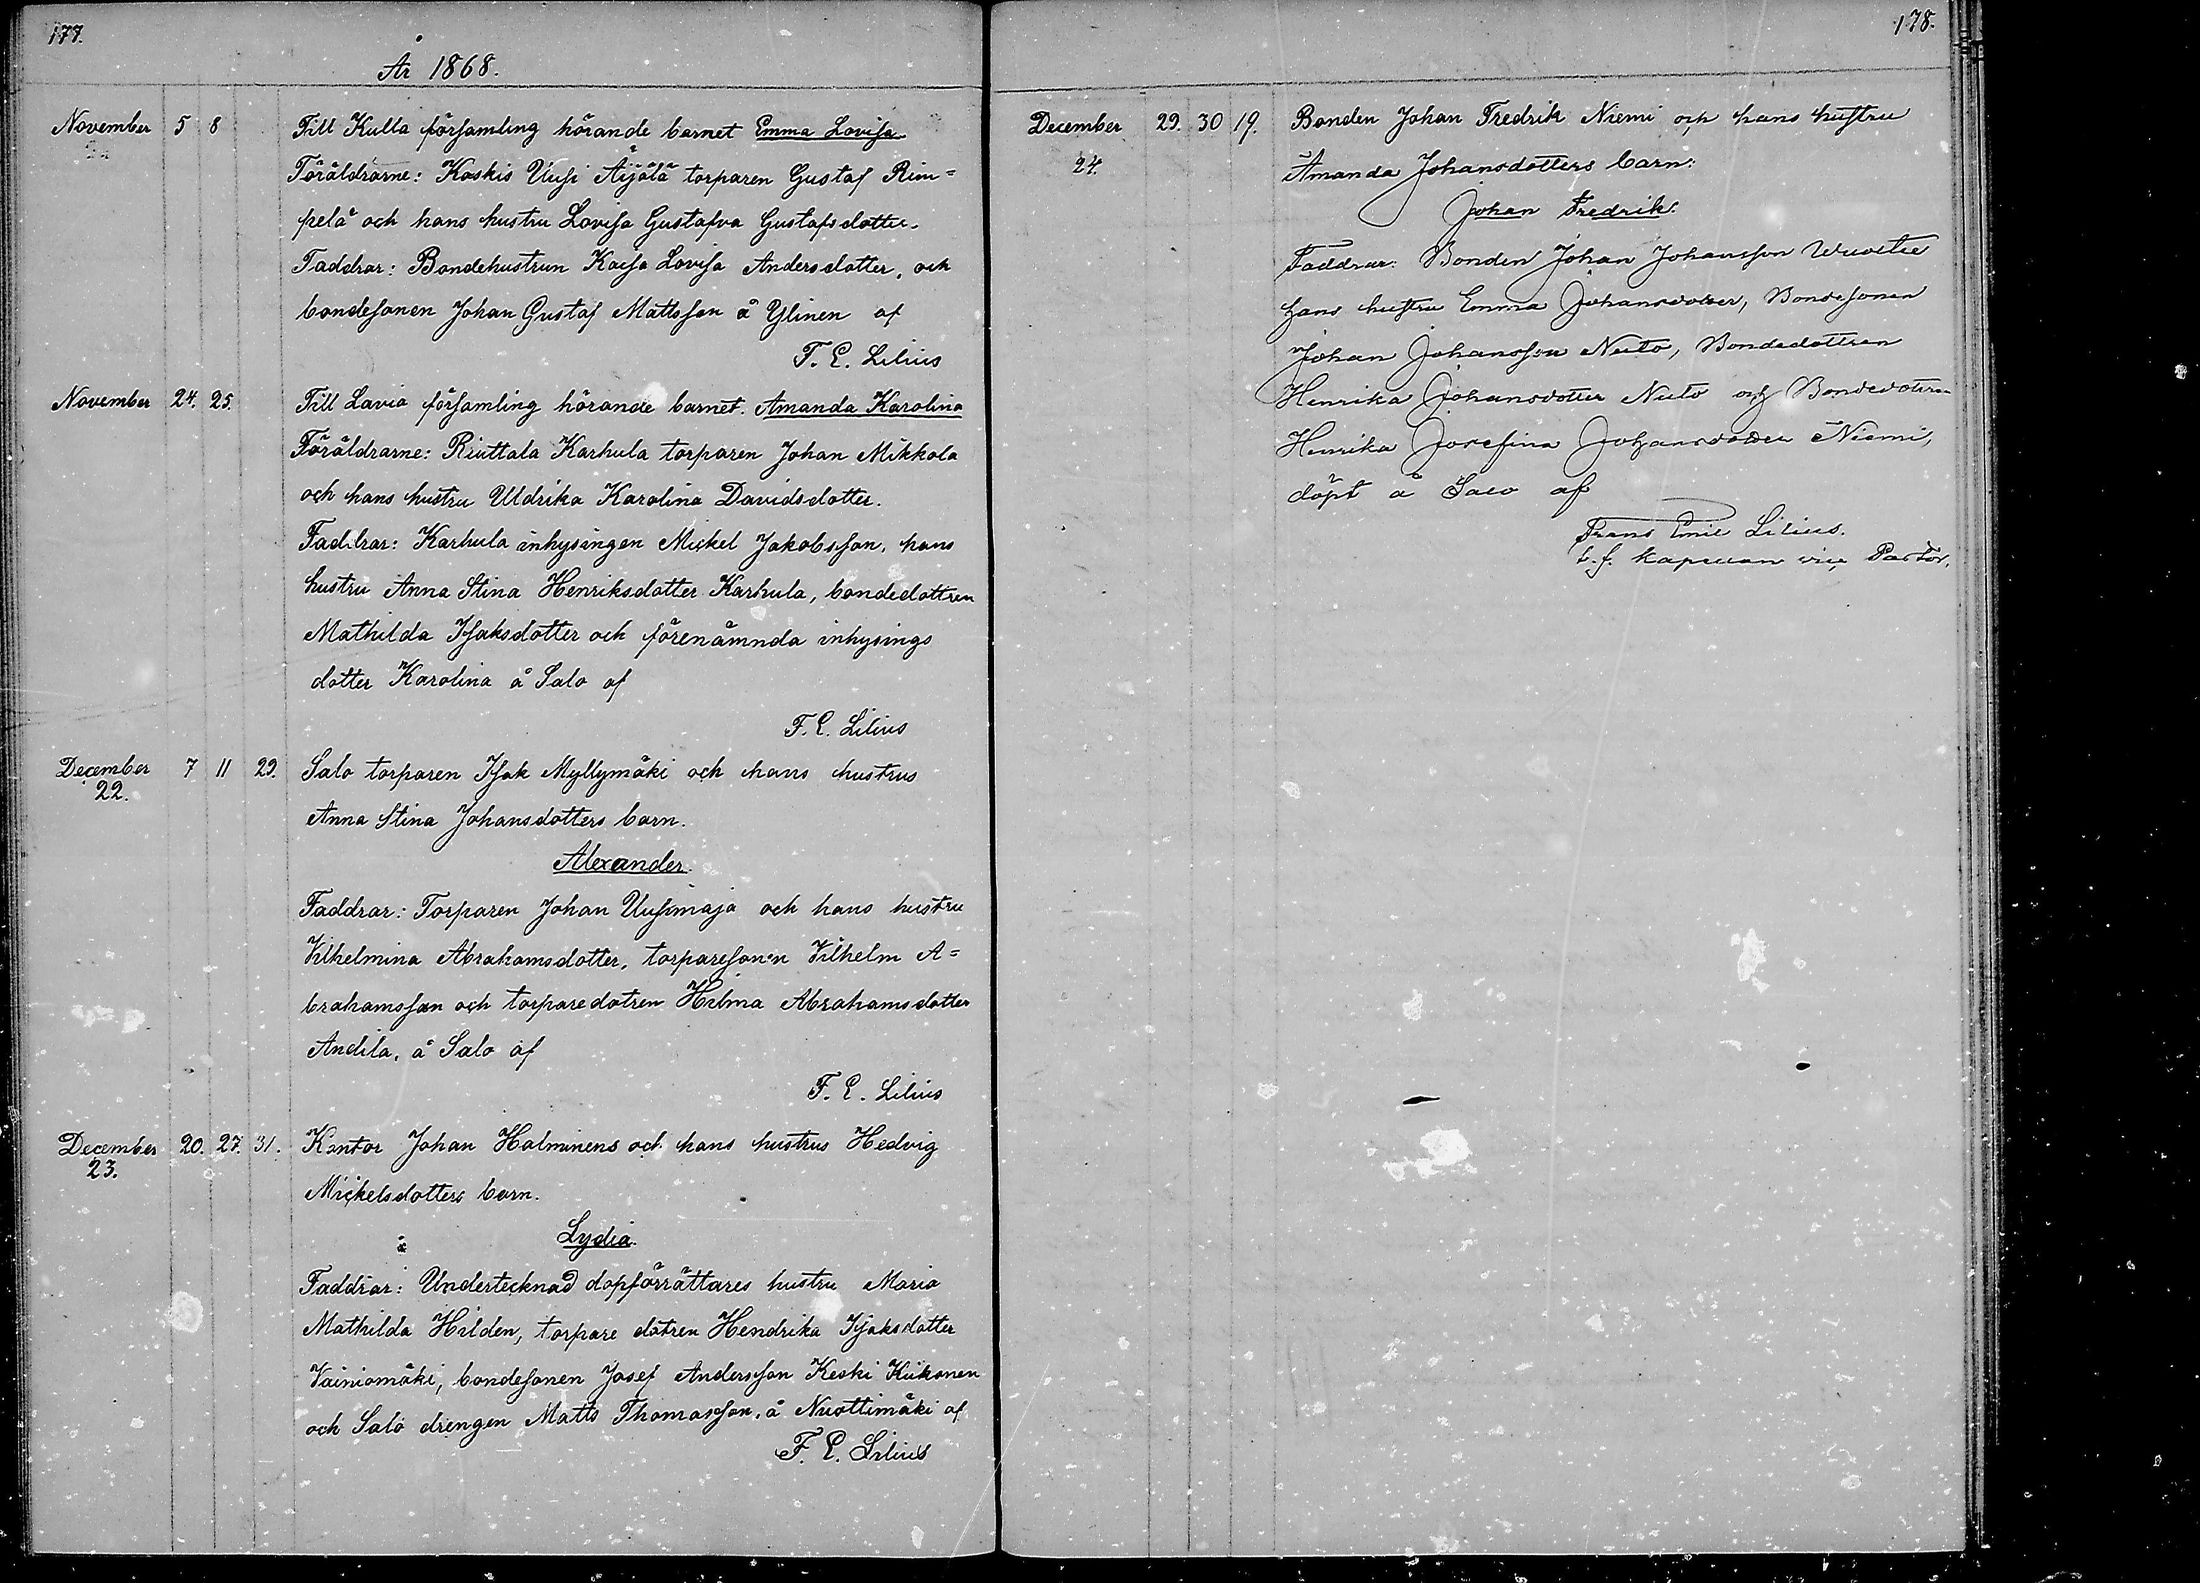 177.
År 1868.
November 5 8 Till Kulla församling hörande barnet Emma Lovisa
Föräldrarne: Koskis Uusi Äijölä torparen Gustaf Rim=
pelä och hans hustru Lovisa Gustafva Gustafsdotter.
Faddrar: Bondehustrun Kaisa Lovisa Andersdotter, och
bondesonen Johan Gustaf Mattsson å Ylinen af
F. E. Lilius
November 24. 25. Till Lavia församling hörande barnet. Amanda Karolina
Föräldrarne: Riuttala Karhula torparen Johan Mikkola
och hans hustru Uldrika Karolina Davidsdotter.
Faddrar: Karhula inhysingen Mickel Jakobsson, hans
hustru Anna Stina Henriksdotter Karhula, bondedottren
Mathilda Isaksdotter och förenämnda inhysings
dotter Karolina å Salo af
F. E. Lilius
December 7 11 29. Salo torparen Isak Myllymäki och hans hustrus
22.
Anna Stina Johansdotters barn.
Alexander.
Faddrar: Torparen Johan Uusimaja och hans hustru
Vilhelmina Abrahamsdotter, torparesonen Vilhelm A=
brahamsson och torparedotren Hilma Abrahamsdotter
Andila, å Salo af
F. E. Lilius
December 20. 27. 31. Kantor Johan Halminens och hans hustrus Hedvig
23.
Mickelsdotters barn.
Lydia.
Faddrar: Undertecknad dopförrättares hustru Maria
Mathilda Hilden, torpare dotren Hendrika Isaksdotter
Vainiomäki, bondesonen Josef Andersson Keski Kiikonen
och Salo drengen Matts Thomasson, å Nuottimäki af
F. E. Lilius
178.
December 29. 30 19. Bonden Johan Fredrik Niemi och hans hustru
24.
Amanda Johansdotters barn:
Johan Fredrik.
Faddrar: Bonden Johan Johansson
hans hustru Emma Johansdotter, Bondesonen
Johan Johansson Nuto, Bondedottren
Henrika Johansdotter Nuto och Bondedotren
Henrika Josefina Johansdotter Niemi,
döpt å Salo af
Frans Emil Lilius.
t.f. kapellan vice Pastor.